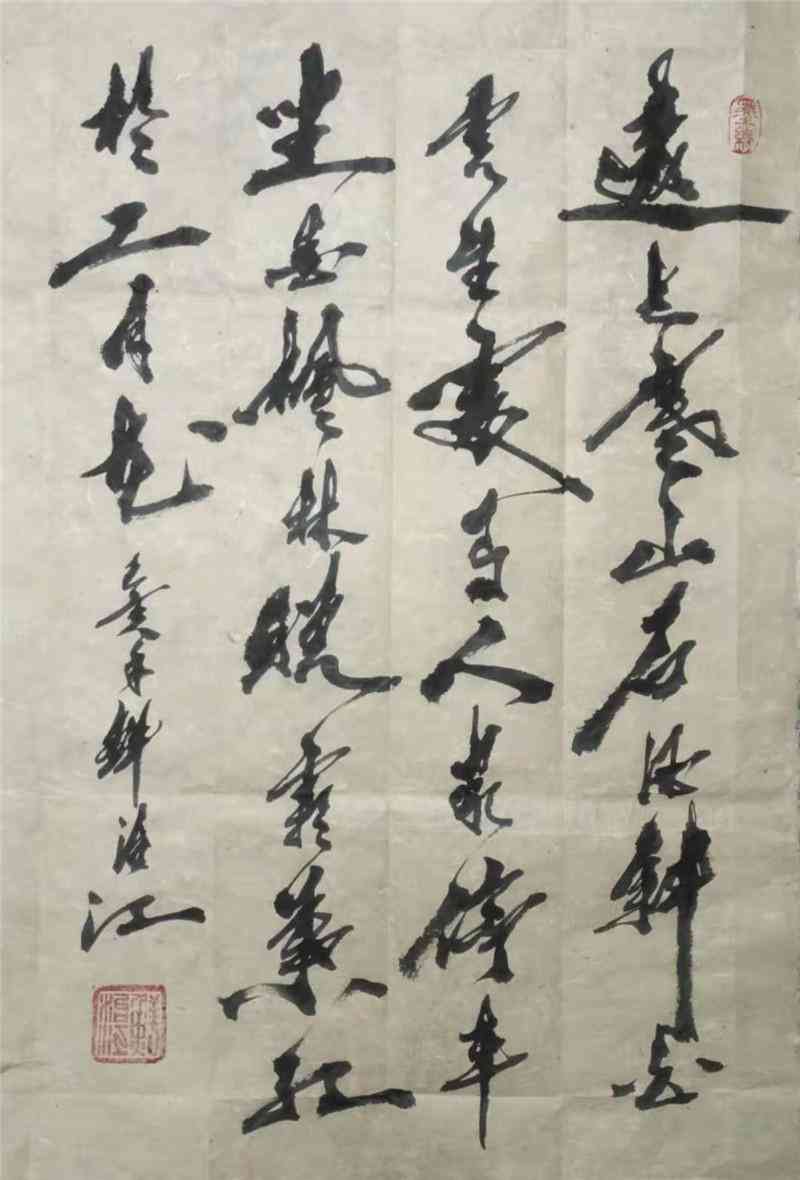 遠上寒山石徑斜白
雲生處有人家停車
坐愛楓林晚霜葉紅
於二月花 癸 江